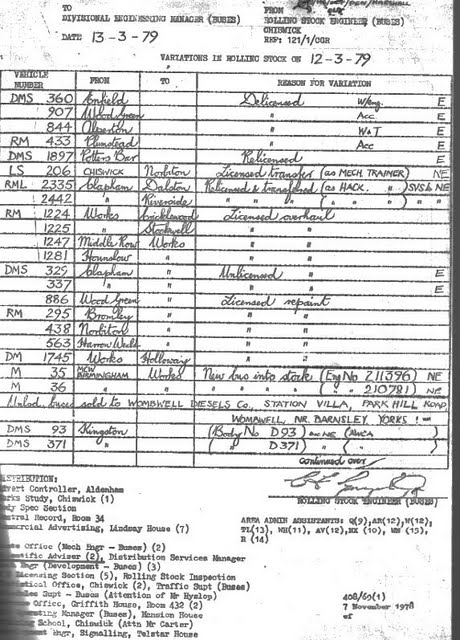 TO
DIVISIONAL ENGINEERING MANAGER (BUSES)
DATE 13-3-79
FROM
ROLLING STOCK ENGINEER (BUSES)
CHISWICK
REF: 121/1/CGR
VARIATIONS IN ROLLING STOCK ON 12-3-79
VEHICLE NUMBER FROM TO REASON FOR VARIATION
DMS 360 Enfield Delicensed W/Eng. E
907 Wood Green " Acc E
844 Alperton " W&T E
RM 433 Plumstead " Acc E
DMS 1897 Potters Bar Relicensed E
LS 206 CHISWICK Norbiton Licensed transfer (as MECH. TRAINER) NE
RML 2335 Clapham Dalston Relicensed & transferred (as HACK. " ) SVS & NE
2442 " Riverside " " " ( " " ) " "
RM 1224 Works Cricklewood Licensed overhaul
1225 " Stockwell " "
1247 Middle Row Works " "
1281 Hounslow " " "
DMS 329 Clapham " Unlicensed " E
337 " " " " E
886 Wood Green " Licensed repaint
RM 295 Bromley " " "
438 Norbiton " " "
563 Harrow Weald " " "
DM 1745 Works Holloway " "
M 35 MCW BIRMINGHAM Works New bus into stock (Eng No 211396) NE
M 36 " " " " " " ( " " 210781) NE
Unlcd buses sold to WOMBWELL DIESELS Co., STATION VILLA, PARK HILL ROAD
WOMBWELL, NR. BARNSLEY, YORKS :-
DMS 93 Kingston (Body No D93)
DMS 371 " ( " D371) " "
continued over/
ROLLING STOCK ENGINEER (BUSES)
DISTRIBUTION:
Advert Controller, Aldenham
Works Study, Chiswick (1)
Body Spec Section
Central Record, Room 34
Commercial Advertising, Lindsay House (7)
AREA ADMIN ASSISTANTS: Q(9), AR(12), W(12),
TL(13), WH(11), AV(12), HX (10), MN (15),
R (14)
Office (Mech Engr - Buses) (2)
Scientific Adviser (2), Distribution Services Manager
Engr (Development - Buses) (3)
Licensing Section (5), Rolling Stock Inspection
Office, Chiswick (2), Traffic Supt (Buses)
Supt - Buses (Attention of Mr Hyslop)
Office, Griffith House, Room 432 (2)
Manager (Buses), Mansion House
School, Chiswick (Attn Mr Carter)
Engr, Signalling, Telstar House
408/69(1)
7 November 1978
of